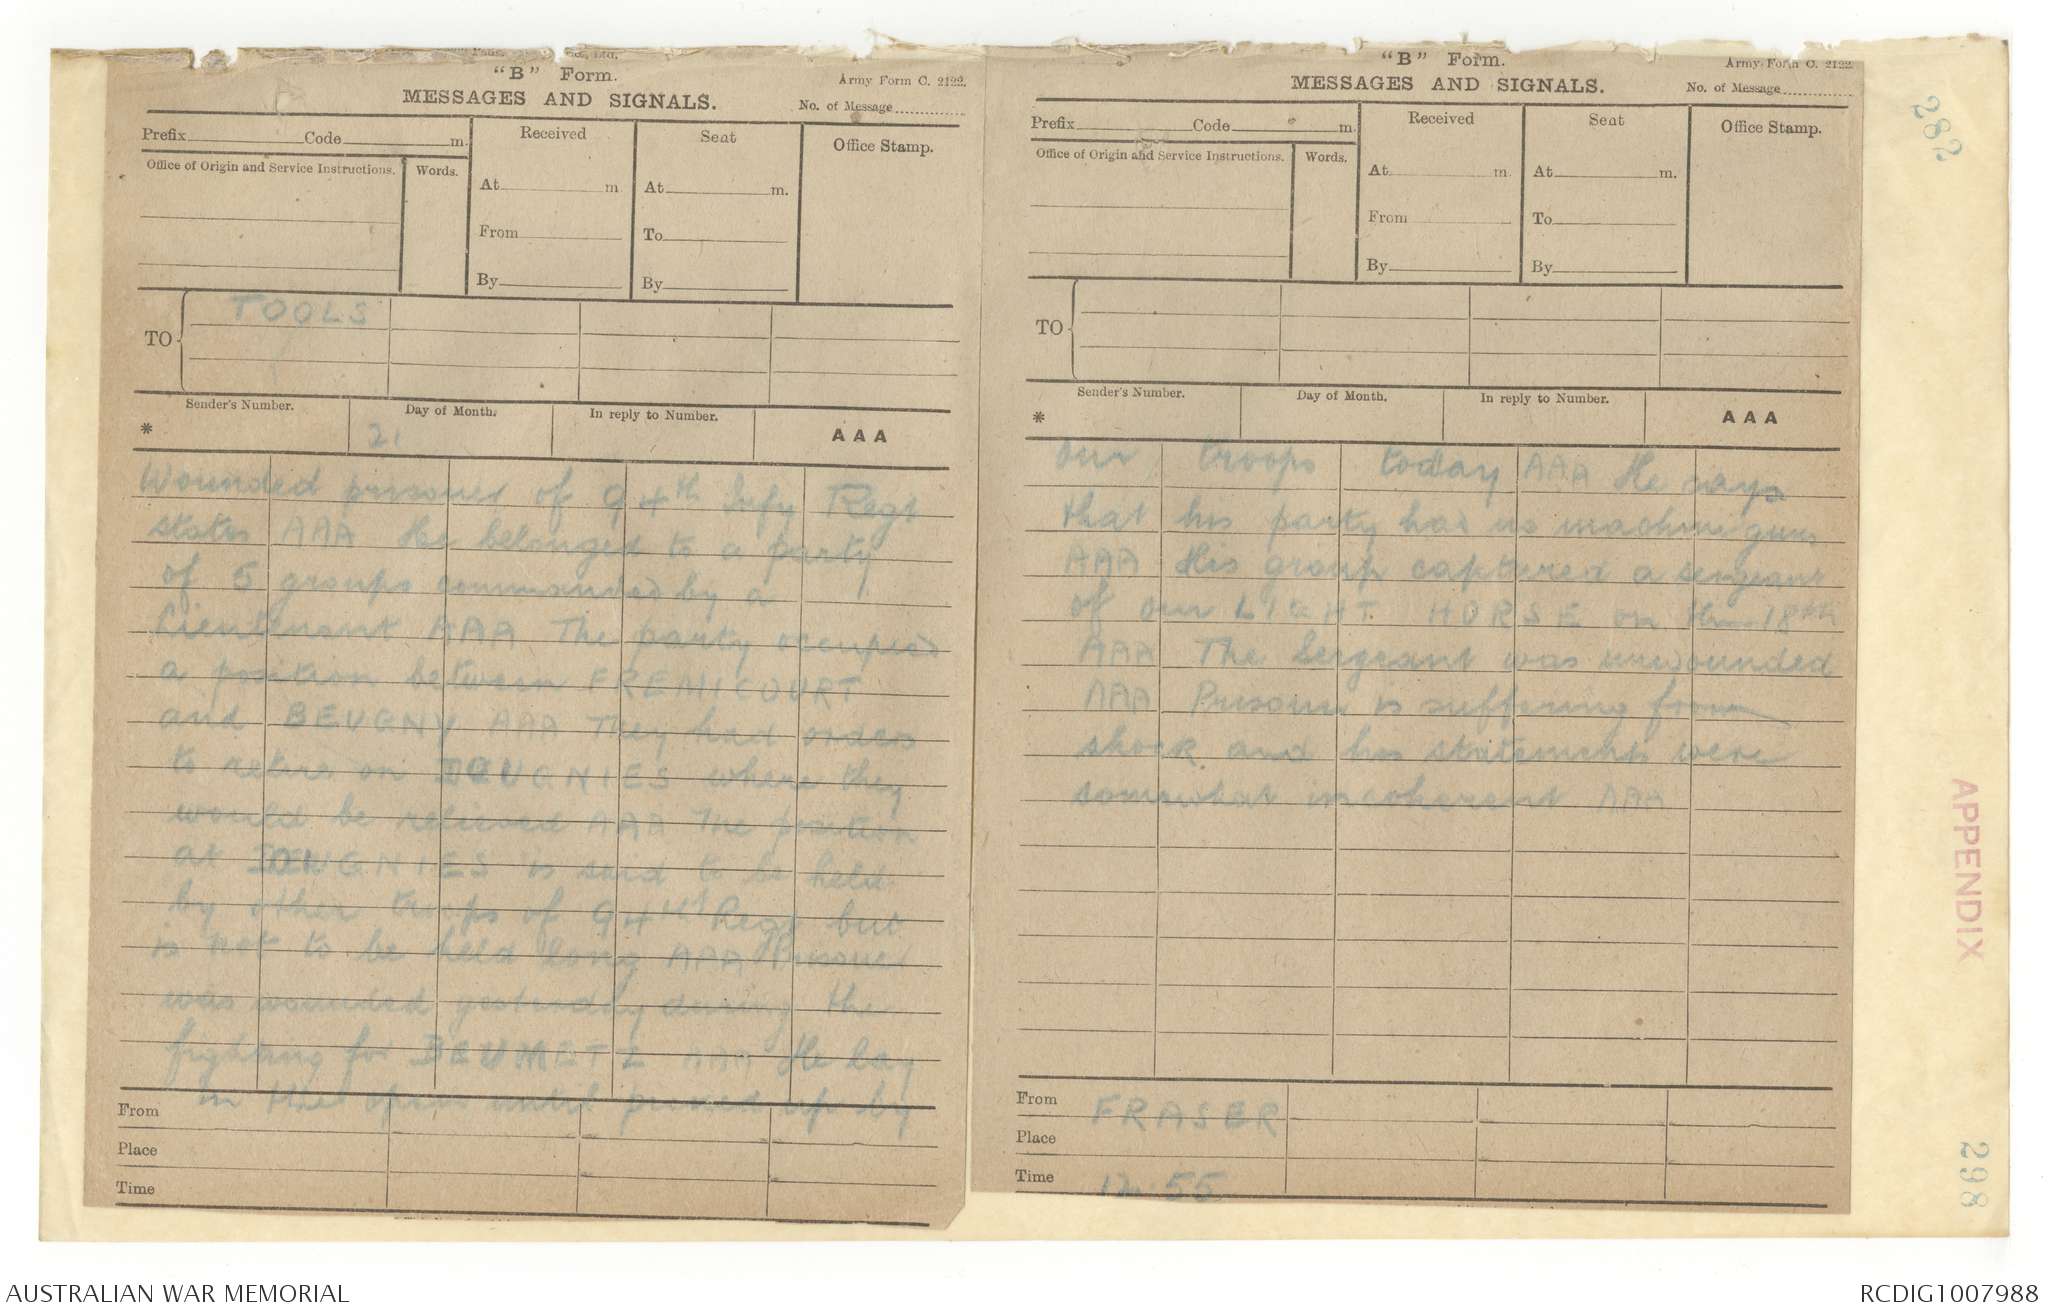 "B" Form.
Army Form C. 2122.
MESSAGES AND SIGNALS.
No. of Message
Prefix Code m.
Received
Sent
Office Stamp.
Office of Origin and Service Instructions.
Words.
At m
At m.
From
To
By
By
TO
TOOLS
Sender's Number.
Day of Month.
In reply to Number.
AAA
*
21
Wounded prisoner of 94th Infy Regt
states AAA He belonged to a party
of 5 groups commanded by a
Lieutenant AAA The party occupied
a position between FREMICOURT
and BEUGNY AAA They had orders
to retire on DOIGNIES where they
would be relieved AAA The position
at DOIGNIES is said to be held
by other troops of 94th Regt but
is not to be held long AAA Prisoner
was wounded yesterday during the
fighting for BEUMETZ AAA He lay
in the open until picked up by
From
Place
Time
"B" Form.
Army Form C. 2122.
MESSAGES AND SIGNALS.
No. of Message
Prefix Code m.
Received
Sent
Office Stamp.
Office of Origin and Service Instructions.
Words.
At m.
At m.
From
To
By
By
TO
Sender's Number.
Day of Month.
In reply to Number.
AAA
*
our troops today AAA He says
that his party had no machine guns
AAA His group captured a sergeant
of our LIGHT HORSE on the 18th
AAA The Sergeant was unwounded
AAA Prisoner is suffering from
shock and his statements were
somewhat incoherent AAA
From
FRASER
Place
Time
12.55
282
APPENDIX
298
AUSTRALIAN WAR MEMORIAL
RCDIG1007988